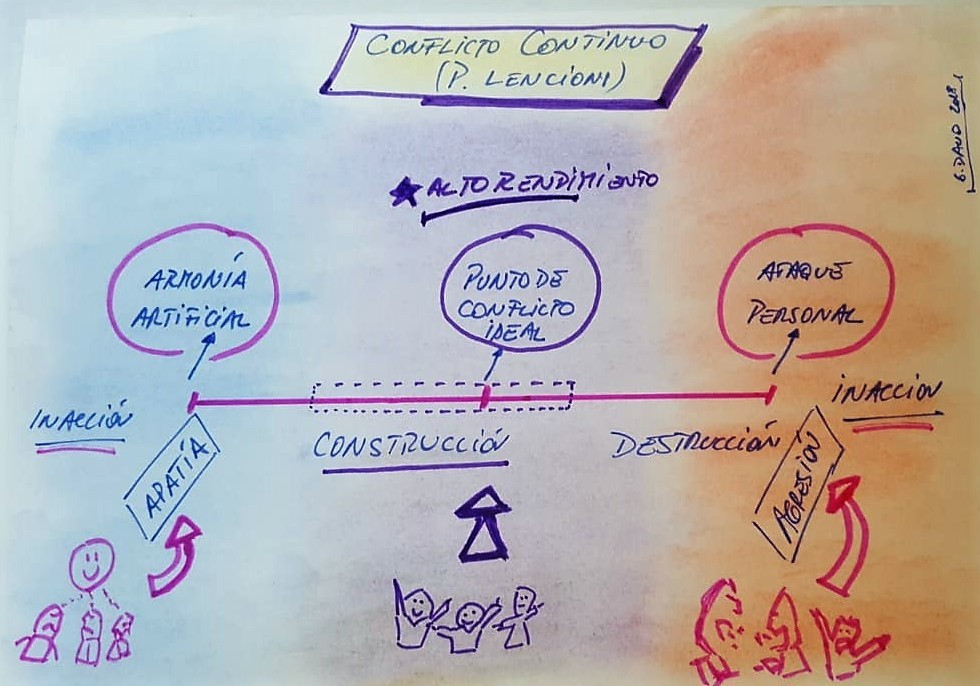 CONFLICTO CONTINUO
(P. LENCIONI)
G. DAUD 2018
★ ALTO RENDIMIENTO
ARMONÍA
ARTIFICIAL
PUNTO DE
CONFLICTO
IDEAL
ATAQUE
PERSONAL
INACCIÓN
INACCION
CONSTRUCCIÓN
DESTRUCCIÓN
APATÍA
AGRESIÓN